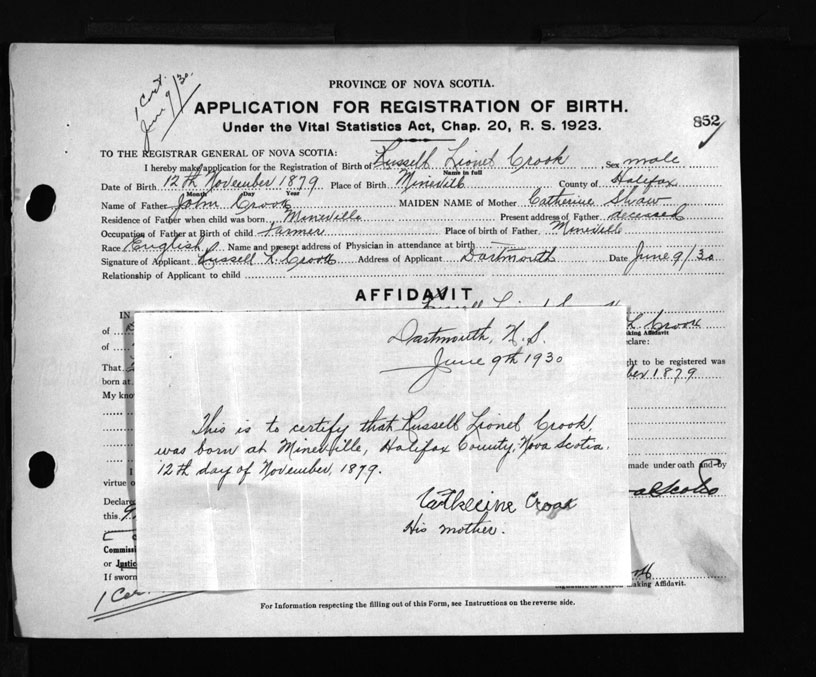 1 Cert.
June 9/30.
PROVINCE OF NOVA SCOTIA.
APPLICATION FOR REGISTRATION OF BIRTH.
Under the Vital Statistics Act, Chap. 20, R. S. 1923.
852
TO THE REGISTRAR GENERAL OF NOVA SCOTIA:
I hereby make application for the Registration of Birth of Russell Lionel Crook Sex male
Name in full
Date of Birth 12th November 1879 Place of Birth Mineville County of Halifax
Month Day Year
Name of Father John Crook MAIDEN NAME of Mother Catherine Shaw
Residence of Father when child was born Mineville Present address of Father deceased
Occupation of Father at Birth of child Farmer Place of birth of Father Mineville
Race English Name and present address of Physician in attendance at birth
Signature of Applicant Russell L. Crook Address of Applicant Dartmouth Date June 9/30
Relationship of Applicant to child
AFFIDAVIT
IN
of L Crook
king Affidavit
of eclare:
That ght to be registered was
born at ber 1879
My kno
Dartmouth, N.S.
June 9th 1930
This is to certify that Russell Lionel Crook,
was born at Mineville, Halifax County, Nova Scotia.
12th day of November, 1879.
Catherine Crook
His mother.
made under oath and by
virtue o
Declare
this 9
Commissi
or Justic
If sworn
king Affidavit.
1 Cer
For Information respecting the filling out of this Form, see Instructions on the reverse side.